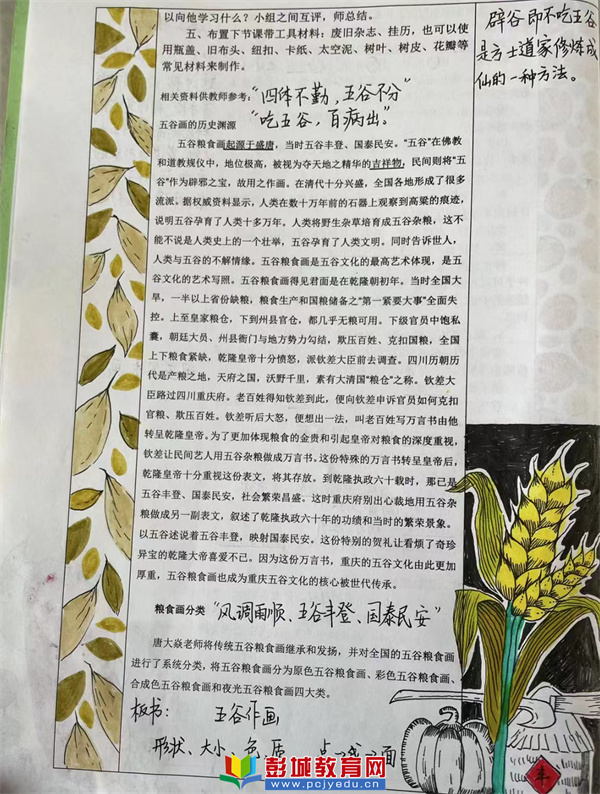 以向他学习什么？小组之间互评，师总结。
五、布置下节课带工具材料：废旧杂志、挂历，也可以使
用瓶盖、旧布头、纽扣、卡纸、太空泥、树叶、树皮、花瓣等
常见材料来制作。
辟谷即不吃五谷
是方士道家修炼成
仙的一种方法。
相关资料供教师参考：“四体不勤，五谷不分”
“吃五谷，百病出。”
五谷画的历史渊源
五谷粮食画起源于盛唐，当时五谷丰登、国泰民安。“五谷”在佛教
和道教规仪中，地位极高，被视为夺天地之精华的吉祥物，民间则将“五
谷”作为辟邪之宝，故用之作画。在清代十分兴盛，全国各地形成了很多
流派。据权威资料显示，人类在数十万年前的石器上观察到高粱的痕迹，
说明五谷孕育了人类十多万年。人类将野生杂草培育成五谷杂粮，这不
能不说是人类史上的一个壮举，五谷孕育了人类文明。同时告诉世人，
人类与五谷的不解情缘。五谷粮食画是五谷文化的最高艺术体现，是五
谷文化的艺术写照。五谷粮食画得见君面是在乾隆朝初年。当时全国大
旱，一半以上省份缺粮，粮食生产和国粮储备之“第一紧要大事”全面失
控。上至皇家粮仓，下到州县官仓，都几乎无粮可用。下级官员中饱私
囊，朝廷大员、州县衙门与地方势力勾结，欺压百姓、克扣国粮，全国
上下粮食紧缺，乾隆皇帝十分愤怒，派钦差大臣前去调查。四川历朝历
代是产粮之地，天府之国，沃野千里，素有大清国“粮仓”之称。钦差大
臣路过四川重庆府。老百姓得知钦差到此，便向钦差申诉官员如何克扣
官粮、欺压百姓。钦差听后大怒，便想出一法，叫老百姓写万言书由他
转呈乾隆皇帝。为了更加体现粮食的金贵和引起皇帝对粮食的深度重视，
钦差让民间艺人用五谷杂粮做成万言书。这份特殊的万言书转呈皇帝后，
乾隆皇帝十分重视这份表文，将其存放。到乾隆执政六十载时，那已是
五谷丰登、国泰民安，社会繁荣昌盛。这时重庆府别出心裁地用五谷杂
粮做成另一副表文，叙述了乾隆执政六十年的功绩和当时的繁荣景象。
以五谷述说着五谷丰登，映射国泰民安。这份特别的贺礼让看烦了奇珍
异宝的乾隆大帝喜爱不已。因为这份万言书，重庆的五谷文化由此更加
厚重，五谷粮食画也成为重庆五谷文化的核心被世代传承。
粮食画分类“风调雨顺、五谷丰登、国泰民安”
唐大焱老师将传统五谷粮食画继承和发扬，并对全国的五谷粮食画
进行了系统分类，将五谷粮食画分为原色五谷粮食画、彩色五谷粮食画、
合成色五谷粮食画和夜光五谷粮食画四大类。
板书：　五谷作画
形状、大小、色、质　点→线→面
丰
彭城教育网
www.pcjyedu.cn